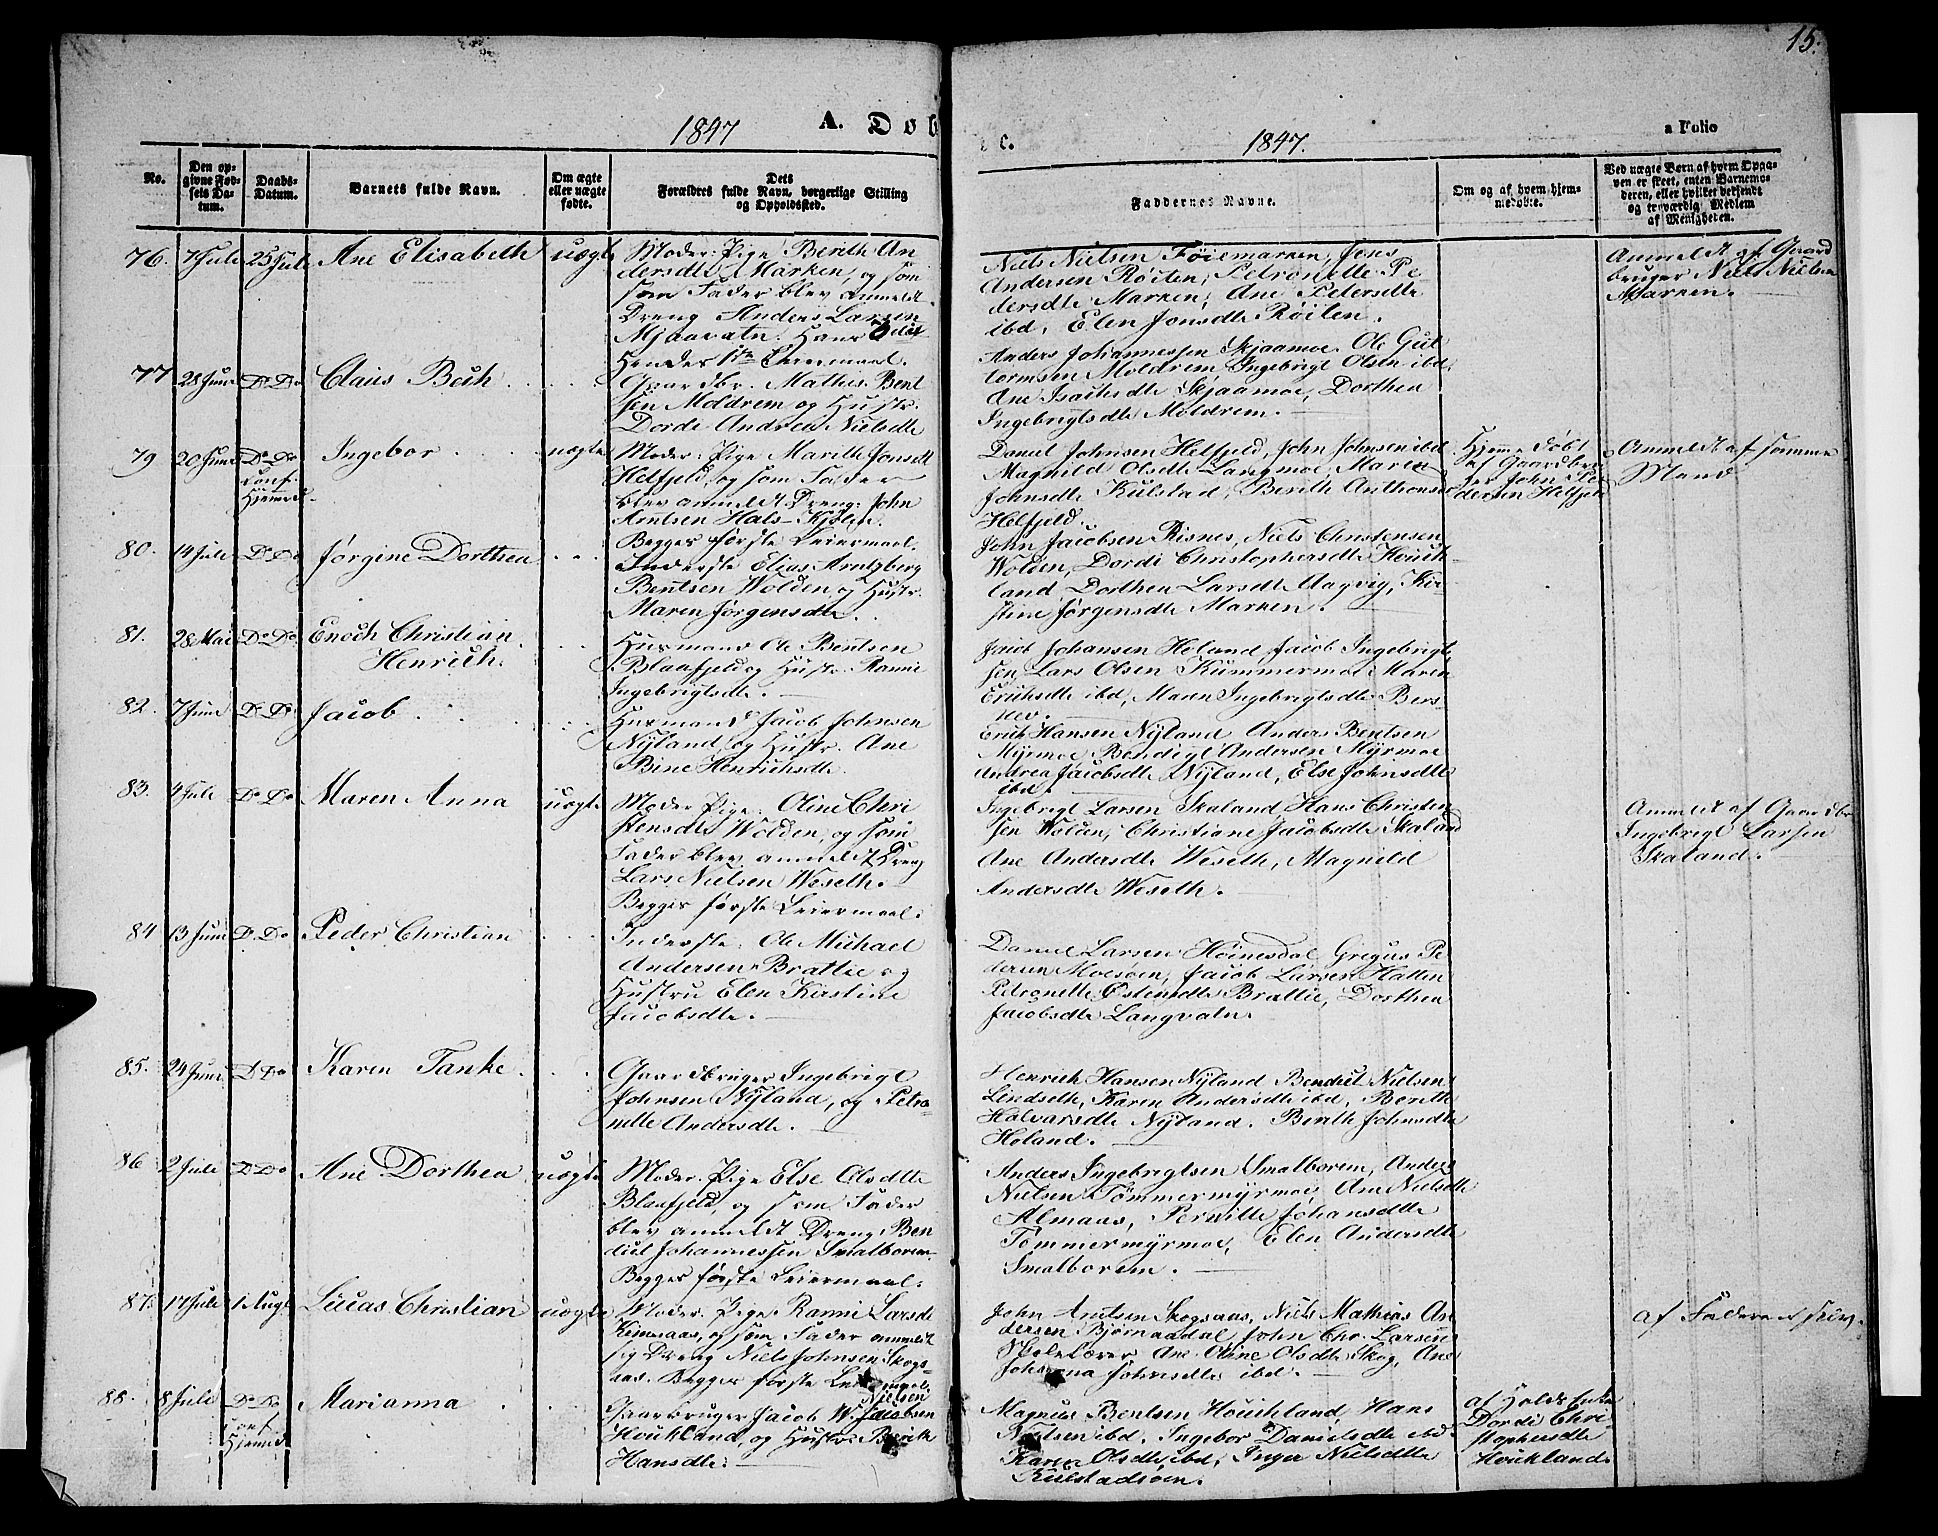 15.
1847
A. Døb
e.
1847.
a Folio
No.
Den op-
givne Fød-
sels Da-
tum.
Daabs-
Datum.
Barnets fulde Navn.
Om ægte
eller uægte
fødte.
Dets
Forældres fulde Navn, borgerlige Stilling
og Opholdssted.
Faddernes Navne.
Om og af hvem hjem-
medøbt.
Ved uægte Børn af hvem Opga-
ven er skeet, enten Barnemo-
deren, eller hvilket bekjendt
og troværdig Medlem
af Menigheden.
76. 7 Juli 25 Juli Ane Elisabeth uægte
Moder: Pige Berith An
dersdtr Marken, og som
som Fader blev anmeldt
Dreng Anders Larsen
Mjaavatn. Hans
Hendes 1te Leiermaal.
Niels Nielsen Føiemarken, Jens
Andersen Røiten, Petronelle Pe
dersdtr Marken, Ane Petersdtr
ibd, Elen Jonsdtr Røiten.
Anmeldt af Gaard
bruger Niels Nielsen
Marken.
77 28 Juni Do Do Claus Bech
Gaardbr. Mathis Bent
sen Moldrem og Hustr.
Dordi Andrea Nielsdtr
Anders Johannessen Skjaamoe. Ole Gut
tormsen Moldrem, Ingebrigt Olsen ibd,
Ane Isachsdtr Skjaamoe, Dorthea
Ingebrigtsdtr Moldrem.
79 20 Juni Do Do
Conf.
Hjemmed.
Ingebor uægte
Moder: Pige Marith Jonsdtr
Helfjeld, og som Fader
blev anmeldt Dreng: John
Arntsen Hals-Kjølen.
Begges første Leiermaal.
Daniel Johnsen Helfjeld, John Johnsen ibd
Magnild Olsdtr Langmoe, Maren
Johnsdtr Kulstad, Berith Anthonsdtr
Helfjeld.
Hjemme døbt
af Gaardbru
ger John Pe
dersen Helfjeld
Anmeldt af samme
Mand
80. 14 Juli Do Do Jørgine Dorthea
Inderste Elias Arntzberg
Bentsen Wolden og Hustr.
Maren Jørgensdtr
John Jacobsen Risnes, Niels Christensen
Wolden, Dordi Christophersdtr Houk-
land, Dorthea Larsdtr Aagvig, Kir
stine Jørgensdtr Marken.
81. 28 Mai Do Do Enoch Christian
Henrich.
Husmand Ole Bentsen
Blaafjeld og Hustr. Ranni
Ingebrigtsdtr.
Jacob Johansen Høland, Jacob Ingebrigt
sen, Lars Olsen Kummermoe, Maren
Erichsdtr ibd, Maren Ingebrigtsdtr Bers-
nev.
82. 7 Juni Do Do Jacob
Husmand Jacob Johnsen
Nyland og Hustr. Ane
Bine Henrichsdtr
Erik Hansen Nyland, Anders Bentsen
Myrmoe, Bendigt Andersen Myrmoe
Andrea Jacobsdtr Nyland, Else Johnsdtr
ibd.
83. 4 Juli Do Do Maren Anna uægte
Moder: Pige: Oline Chri
stensdtr Wolden, og som
Fader blev anmeldt Dreng
Lars Nielsen Weseth.
Begges første Leiermaal.
Ingebrigt Larsen Skaland, Hans Christen
sen Wolden, Christiane Jacobsdtr Skaland
Ane Andersdtr Weseth, Magnild
Andersdtr Weseth.
Anmeldt af Gaardbr
Ingebrigt Larsen
Skaland.
84 13 Juni Do Do Peder Christian
Inderste: Ole Michael
Andersen Brattlie og
Hustru Elen Kirstine
Jacobsdtr.
Daniel Larsen Høinesdal, Gregus Pe
dersen Moesøen, Jacob Larsen Hatten
Petronelle Østensdtr Brattlie, Dorthea
Jacobsdtr Langvatn.
85. 24 Juni Do Do Karen Tanke
Gaardbruger Ingebrigt
Johnsen Nyland, og Petro-
nelle Andersdtr.
Henrich Hansen Nyland, Bendict Nielsen
Lindseth, Karen Andersdtr ibd, Berith
Halvarsdtr Nyland. Berith Johnsdtr
Høland.
86 2 Juli Do Do Ane Dorthea uægte
Moder: Pige Else Olsdtr
Blaafjeld, og som Fader
blev anmeldt Dreng Ben
dict Johannessen Smalborem.
Begges første Leiermaal.
Anders Ingebrigtsen Smalborem, Anders
Nielsen Tømmermyrmoe, Ane Nielsdtr
Almaas, Pernille Johansdtr
Tømmermyrmoe, Elen Andersdtr
Smalborem.
87. 17 Juli 1 Augt Lucas Christian uægte
Moder: Pige Ranni Larsdtr
Kinnsaas, og som Fader anmeldt
sig Dreng Niels Johnsen Skogs-
aas. Begges første Leiermaal.
John Arntsen Skogsaas, Niels Mathias An
dersen Bjørnaadal, John Chr. Larsen
Skolelærer, Ane Oline Olsdtr Skog, Ane
Johanna Johnsdtr ibd.
af Faderen selv.
88. 8 Juli Do Do
Conf
Hjemmed
Marianna
Nielsen
Gaarbruger Jacob W. Jacobsen
Houkland, og Hustr Berith
Hansdtr.
Magnus Bentsen Houkland, Hans
Nielsen ibd, Ingebor Danielsdtr ibd.
Karen Olsdtr ibd, Inger Nielsdtr
Kulstadsøen.
af Holds Enke
Dordi Chri
stophersdtr
Houkland.